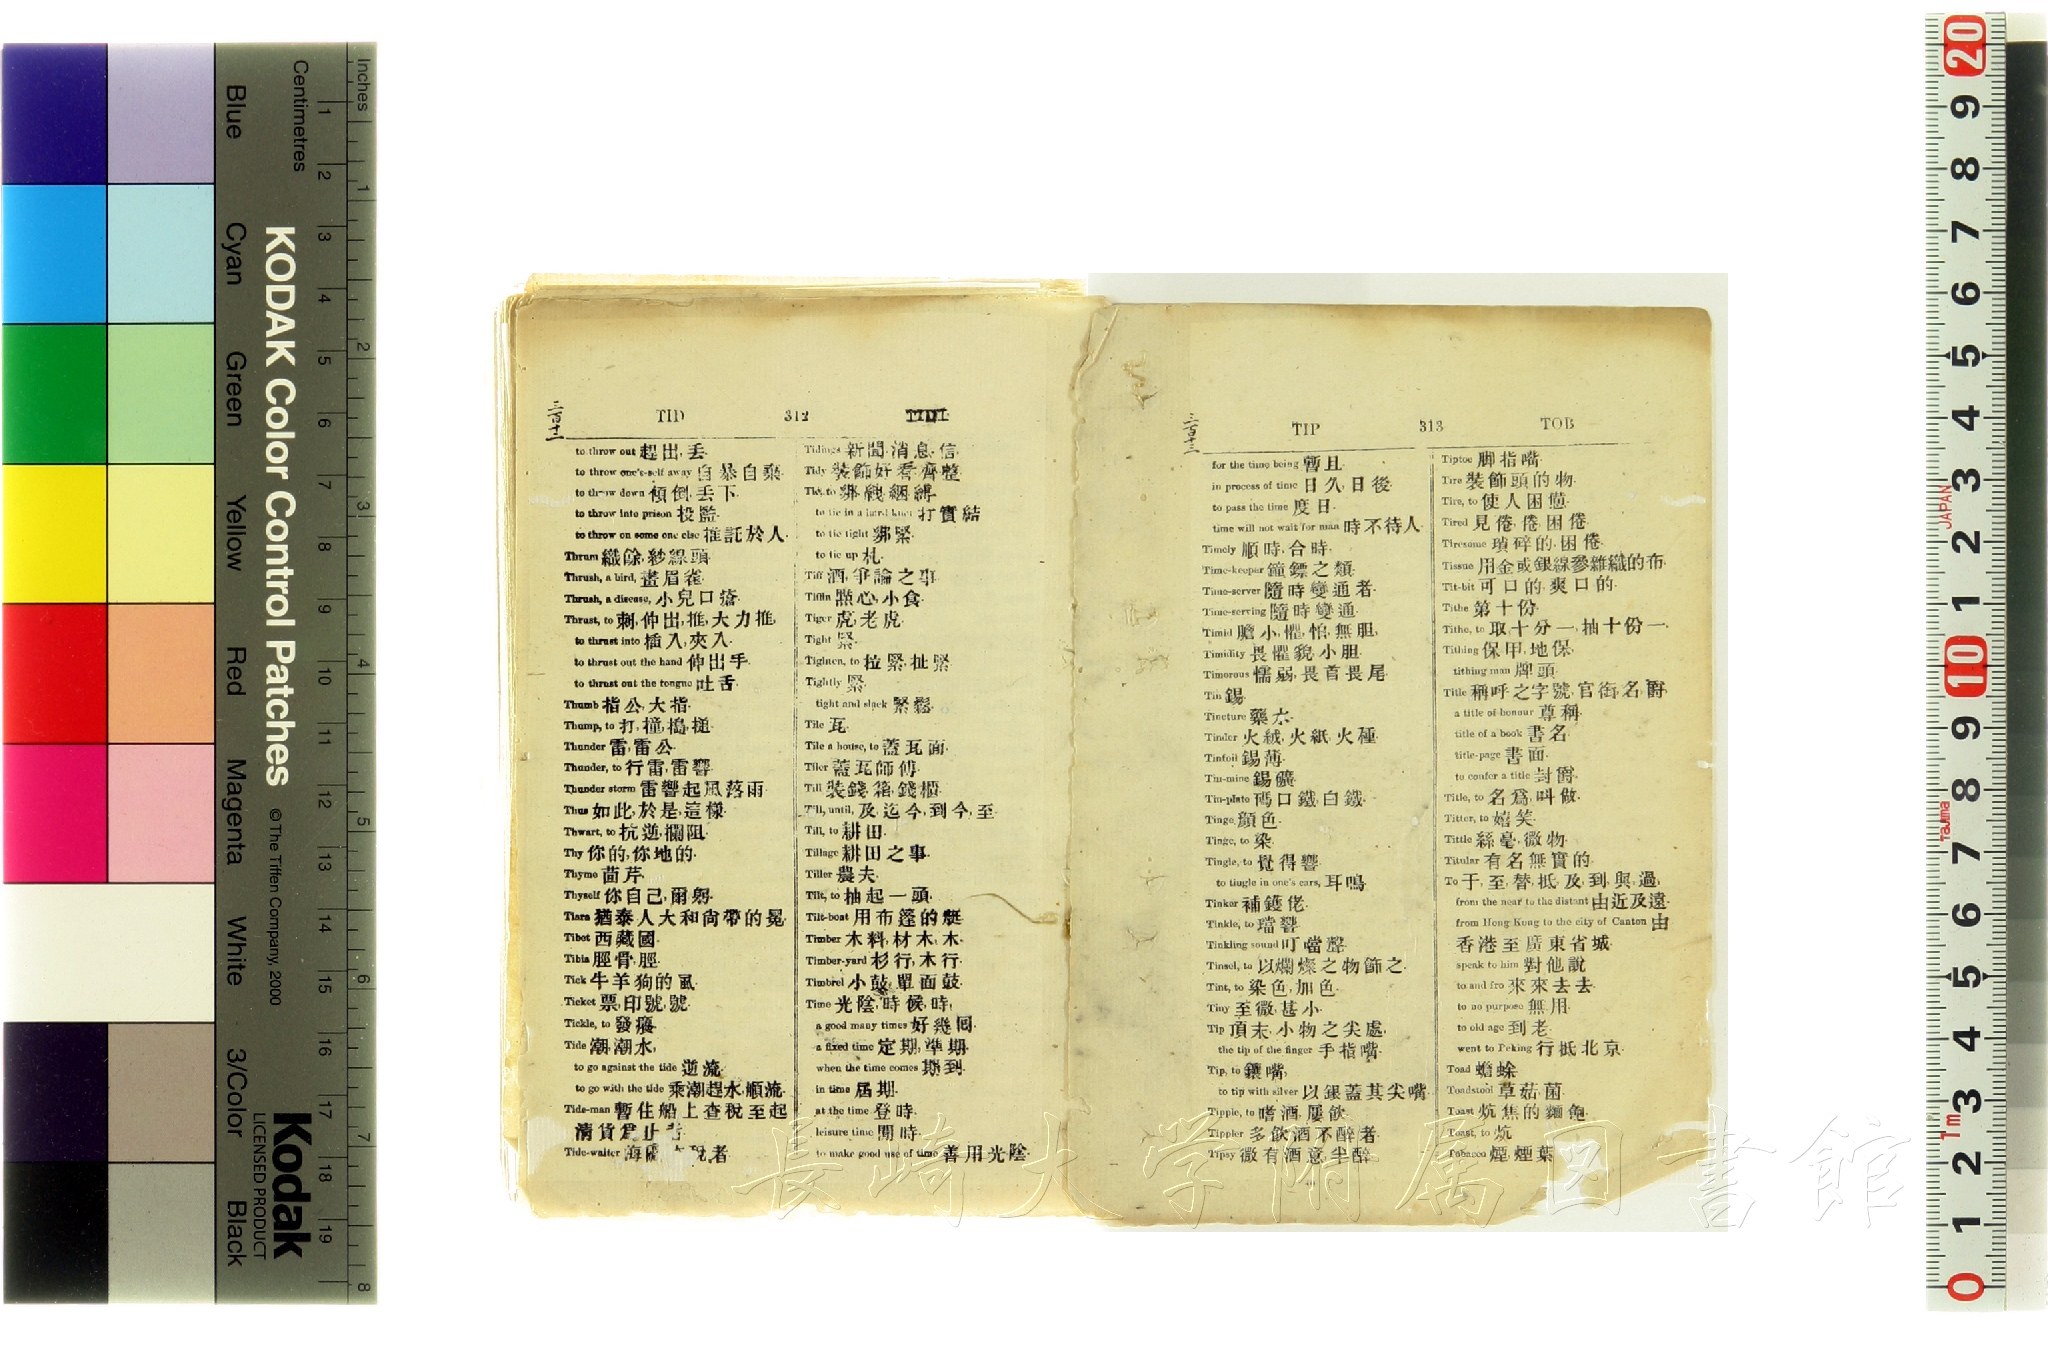 三百十二
TID 312 TIDI
to throw out 趕出,丢
to throw one's-self away 自暴自棄
to throw down 傾倒,丢下
to throw into prison 投監
to throw on some one else 推託於人
Thrum 織餘,紗線頭
Thrush, a bird, 畫眉雀
Thrush, a disease, 小兒口瘡
Thrust, to 刺,伸出,推,大力推
to thrust into 插入,夾入
to thrust out the hand 伸出手
to thrust out the tongue 吐舌
Thumb 指公,大指
Thump, to 打,撞,搗,搥
Thunder 雷,雷公
Thunder, to 行雷,雷響
Thunder storm 雷響起風落雨
Thus 如此,於是,這樣
Thwart, to 抗逆,攔阻
Thy 你的,你地的
Thyme 茴芹
Thyself 你自己,爾躬
Tiara 猶泰人大和尚帶的冕
Tibet 西藏國
Tibia 脛骨,脛
Tick 牛羊狗的虱
Ticket 票,印號,號
Tickle, to 發癢
Tide 潮,潮水
to go against the tide 逆流
to go with the tide 乘潮趕水,順流
Tide-man 暫住船上查稅至起
清貨爲止者
Tide-waiter 海關 者
Tidings 新聞,消息,信
Tidy 裝飾好看,齊整
Tie, to 綁,綑縛
to tie in a hard knot 打實結
to tie tight 綁緊
to tie up 札
Tiff 酒,爭論之事
Tiffin 點心,小食
Tiger 虎,老虎
Tight 緊
Tighten, to 拉緊,扯緊
Tightly 緊
tight and slack 緊鬆
Tile 瓦
Tile a house, to 蓋瓦面
Tiler 蓋瓦師傅
Till 裝錢箱,錢櫃
Till, until, 及,迄今,到今,至
Till, to 耕田
Tillage 耕田之事
Tiller 農夫
Tilt, to 抽起一頭
Tilt-boat 用布篷的艇
Timber 木料,材木,木
Timber-yard 杉行,木行
Timbrel 小鼓,單面鼓
Time 光陰,時候,時
a good many times 好幾回
a fixed time 定期,準期
when the time comes 期到
in time 屆期
at the time 登時
leisure time 閒時
to make good use of time 善用光陰
三百十三
TIP 313 TOB
for the time being 暫且
in process of time 日久,日後
to pass the time 度日
time will not wait for man 時不待人
Timely 順時,合時
Time-keeper 鐘鏢之類
Time-server 隨時變通者
Time-serving 隨時變通
Timid 膽小,懼怕,無胆
Timidity 畏懼貌,小胆
Timorous 懦弱,畏首畏尾
Tin 錫
Tincture 藥
Tinder 火絨,火紙,火種
Tinfoil 錫薄
Tin-mine 錫礦
Tin-plate 碼口鐵,白鐵
Tinge 顏色
Tinge, to 染
Tingle, to 覺得響
to tingle in one's ears, 耳鳴
Tinker 補鑊佬
Tinkle, to 璫響
Tinkling sound 叮噹聲
Tinsel, to 以爛燦之物飾之
Tint, to 染色,加色
Tiny 至微,甚小
Tip 頂末,小物之尖處
the tip of the finger 手指嘴
Tip, to 鑲嘴
to tip with silver 以銀蓋其尖嘴
Tipple, to 嗜酒,屢飲
Tippler 多飲酒不醉者
Tipsy 微有酒意,半醉
Tiptoe 脚指嘴
Tire 裝飾頭的物
Tire, to 使人困憊
Tired 見倦,倦,困倦
Tiresome 瑣碎的,困倦
Tissue 用金或銀線參雜織的布
Tit-bit 可口的,爽口的
Tithe 第十份
Tithe, to 取十分一,抽十份一
Tithing 保甲,地保
tithing-man 牌頭
Title 稱呼之字號,官銜,名,爵
a title of honour 尊稱
title of a book 書名
title-page 書面
to confer a title 封爵
Title, to 名爲,叫做
Titter, to 嬉笑
Tittle 絲毫,微物
Titular 有名無實的
To 于,至,替,抵,及,到,與,過
from the near to the distant 由近及遠
from Hong Kong to the city of Canton 由
香港至廣東省城
speak to him 對他說
to and fro 來來去去
to no purpose 無用
to old age 到老
went to Peking 行抵北京
Toad 蟾蜍
Toadstool 草菇,菌
Toast 炕焦的麵飽
Toast, to 炕
Tobacco 煙,煙葉
長崎大学附属図書館
Inches
Centimetres
KODAK Color Control Patches
© The Tiffen Company, 2000
Kodak
LICENSED PRODUCT
Blue Cyan Green Yellow Red Magenta White 3/Color Black
1 2 3 4 5 6 7 8 9 10 11 12 13 14 15 16 17 18 19
1 2 3 4 5 6 7 8
20 9 8 7 6 5 4 3 2 1 10 9 8 7 6 5 4 3 2 1 0
JAPAN
Tajima
1m